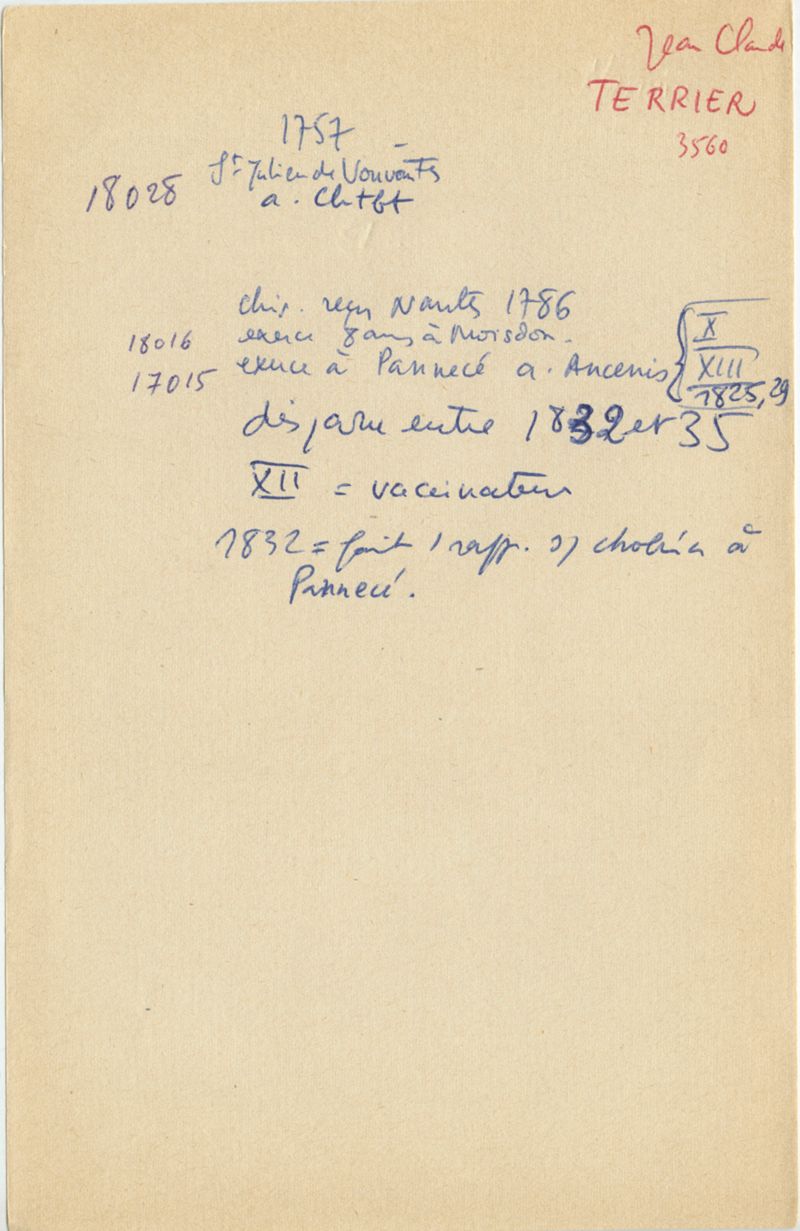 Jean Claude
TERRIER
3560
1757
18028 St Julien de Vouvantes
a. Chtbt
chir. reçu Nantes 1786
18016 exerce 8 ans à Moisdon.
17015 exerce à Pannecé a. Ancenis { X
XIII
1825, 29
disparu entre 1832 et 35
XII = vaccinateur
1832 = fait 1 rapp. s/ choléra à
Pannecé.